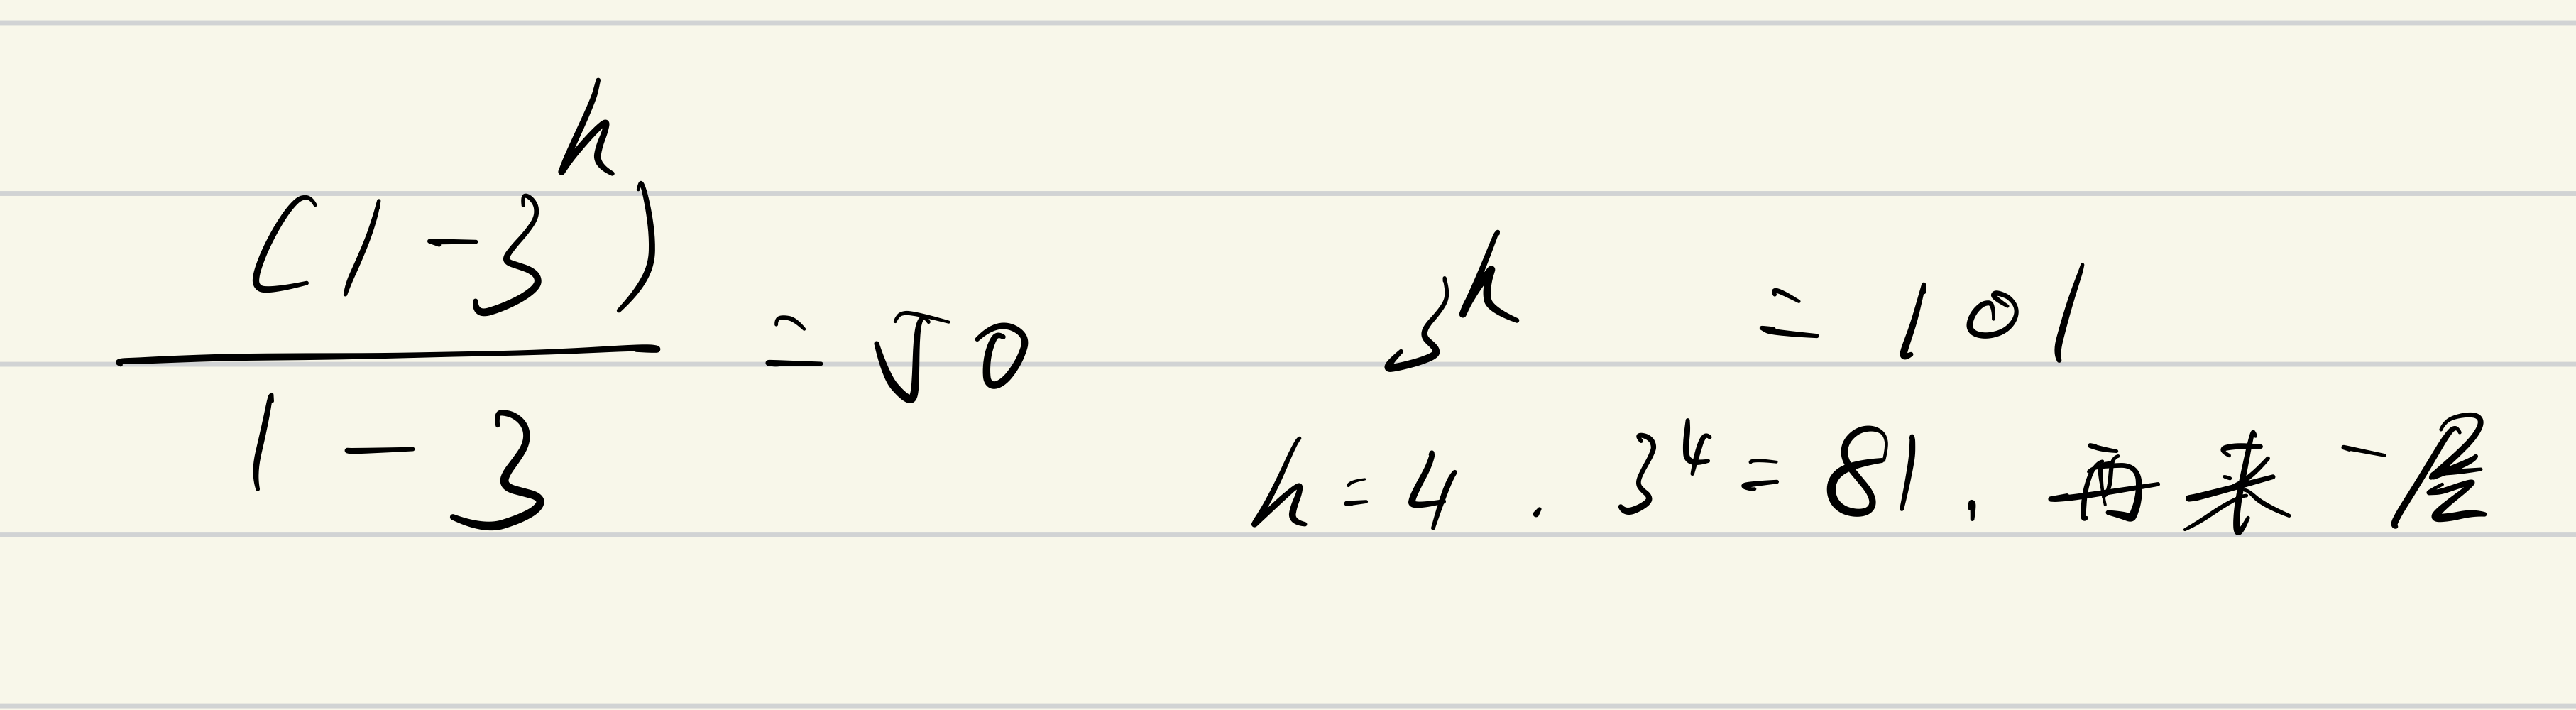 (1-3^h)/(1-3) = 50
3^h = 101
h=4. 3^4=81, 再来一层